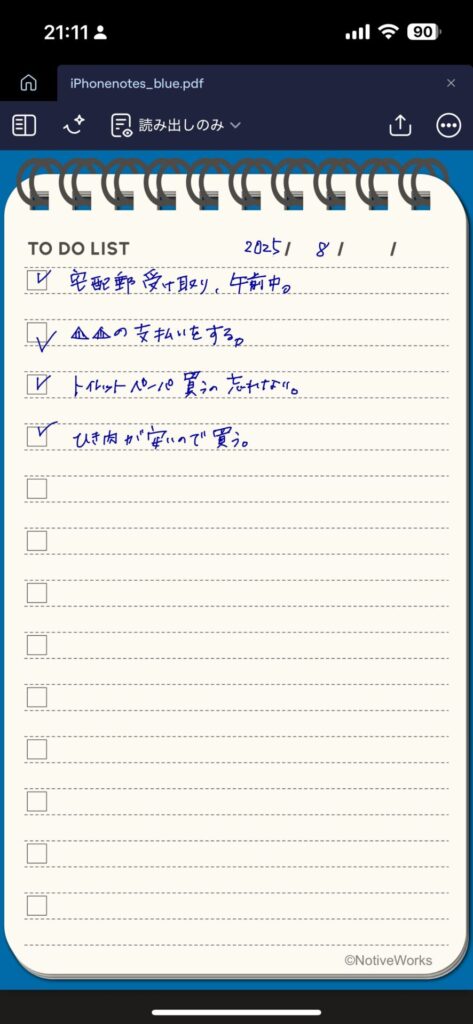 21:11 90
iPhonenotes_blue.pdf ×
読み出しのみ
TO DO LIST 2025/ 8 / /
宅配郵受け取り、午前中。
△△の支払いをする。
トイレットペーパ買うの忘れない。
ひき肉が安いので買う。
©NotiveWorks